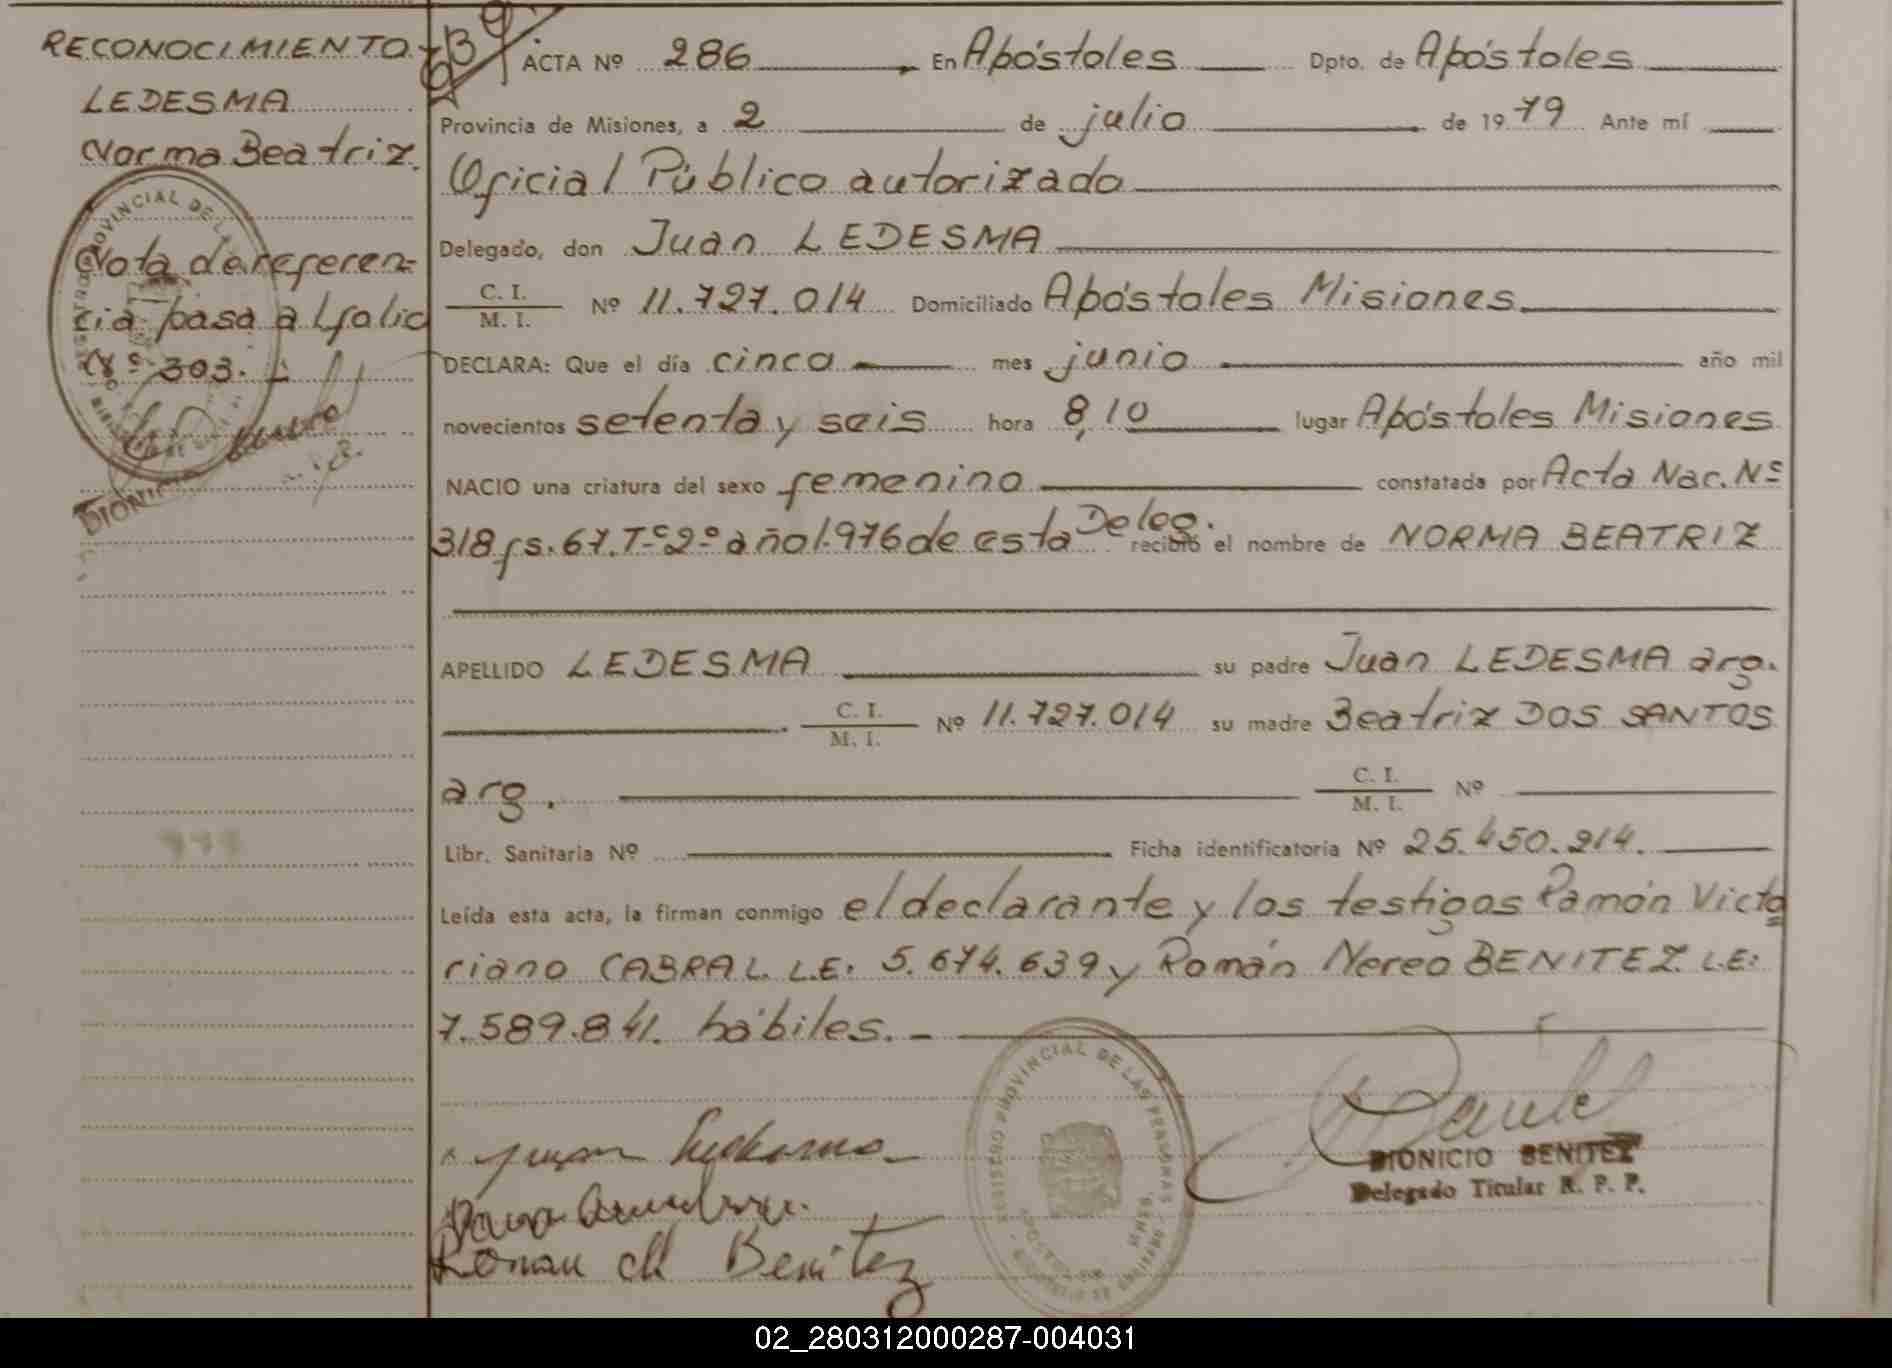 RECONOCIMIENTO.
LEDESMA
Norma Beatriz.
Nota de referen=
cia pasa al folio
Nº 303. -
639
ACTA Nº 286 En Apóstoles Dpto. de Apóstoles
Provincia de Misiones, a 2 de julio de 1979 Ante mí
Oficial Público autorizado
Delegado, don Juan LEDESMA
C. I.
M. I. Nº 11.727.014 Domiciliado Apóstoles Misiones
DECLARA: Que el día cinco mes junio año mil
novecientos setenta y seis hora 8,10 lugar Apóstoles Misiones
NACIO una criatura del sexo femenino constatada por Acta Nac. Nº
318 fs. 67. Tº 2º año 1.976 de esta Deleg. recibió el nombre de NORMA BEATRIZ
APELLIDO LEDESMA su padre Juan LEDESMA arg.
C. I.
M. I. Nº 11.727.014 su madre Beatriz DOS SANTOS
arg. C. I.
M. I. Nº
Libr. Sanitaria Nº Ficha identificatoria Nº 25.450.214.
Leída esta acta, la firman conmigo el declarante y los testigos Ramón Victo
riano CABRAL. L.E: 5.674.639 y Román Nereo BENITEZ. L.E:
7.589.841. hábiles. -
REGISTRO PROVINCIAL DE LAS PERSONAS
DIONICIO BENITEZ
Delegado Titular R. P. P.
Roman Benitez
02_280312000287-004031